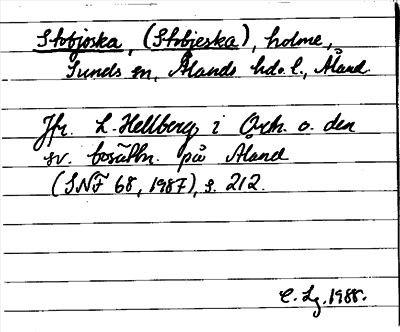 Stobjoska, (Stobjeska), holme,
Sunds sn, Ålands hds. l., Åland.
Jfr. L. Hellberg i Ortn. o. den
sv. bosättn. på Åland
(SNF 68, 1987), s. 212.
C. Lg. 1988.